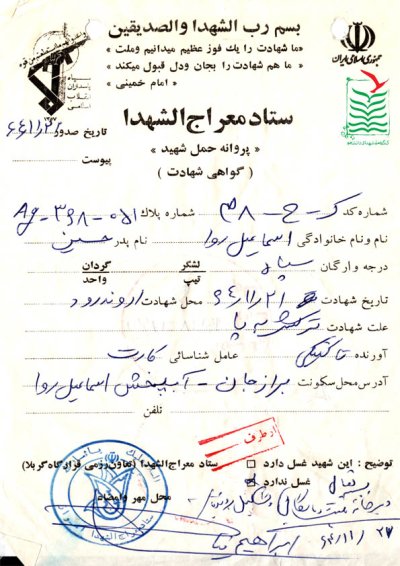 بسم رب الشهدا والصدیقین
«ما شهادت را یك فوز عظیم میدانیم وملت
ما هم شهادت را بجان ودل قبول میکند»
«امام خمینی»
جمهوری اسلامی ایران
سپاه
پاسداران
انقلاب
اسلامی
ستاد معراج الشهدا
تاریخ صدور
«پروانه حمل شهید»
پیوست
(گواهی شهادت)
شماره کد ک-ح-۳۸ شماره پلاك
نام ونام خانوادگی اسماعیل روا نام پدر حسین
درجه وارگان سپاه لشگر گردان
تیپ واحد
تاریخ شهادت ۶۴/۱۱/۲۱ محل شهادت اروندرود
علت شهادت ترکش به پا
آورنده تاکتیکی عامل شناسائی کارت
آدرس محل سکونت برازجان - آبپخش اسماعیل روا
تلفن
از طرف
توضیح: این شهید غسل دارد
ستاد معراج الشهدا (تعاون رزمی قرارگاه کربلا)
غسل ندارد
محل مهر وامضاء
ستاد معراج الشهدا
ابراهیم
۶۴/۱۱/۲۲